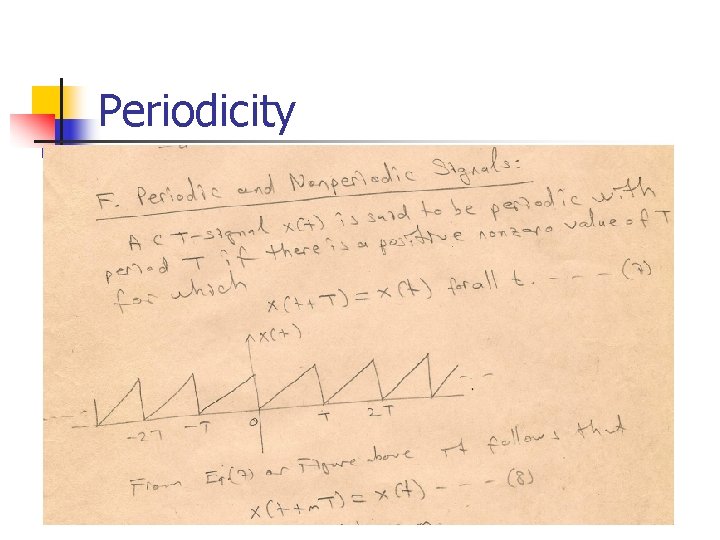 Periodicity
F. Periodic and Nonperiodic Signals:
A CT-signal x(t) is said to be periodic with
period T if there is a positive nonzero value of T
for which
x(t+T) = x(t) for all t. - - - (7)
x(t)
-2T -T 0 T 2T
From Eq(7) or Figure above it follows that
x(t+mT) = x(t) - - - (8)